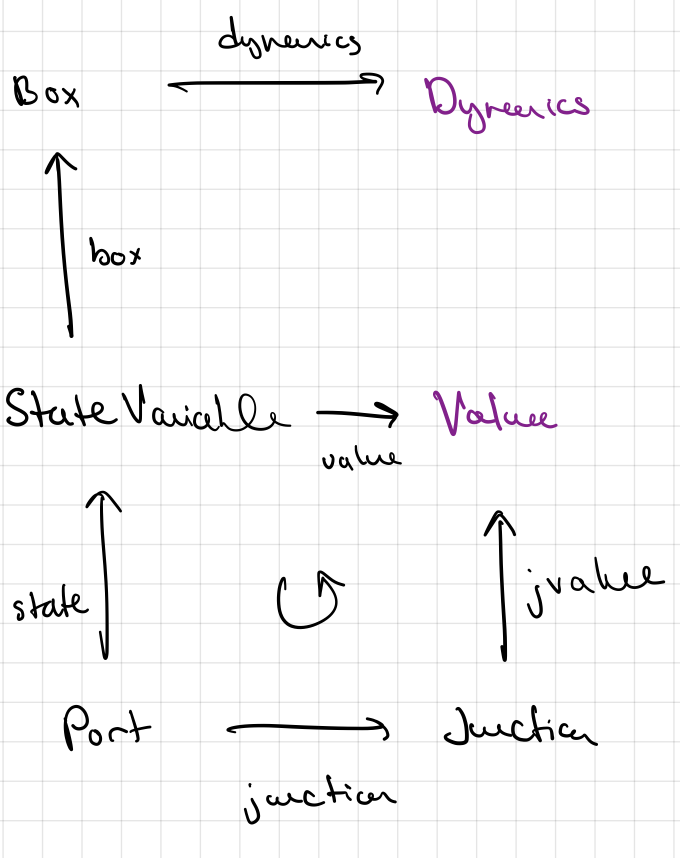 dynamics
Box
Dynamics
box
StateVariable
Value
value
state
jvalue
Port
Junction
junction